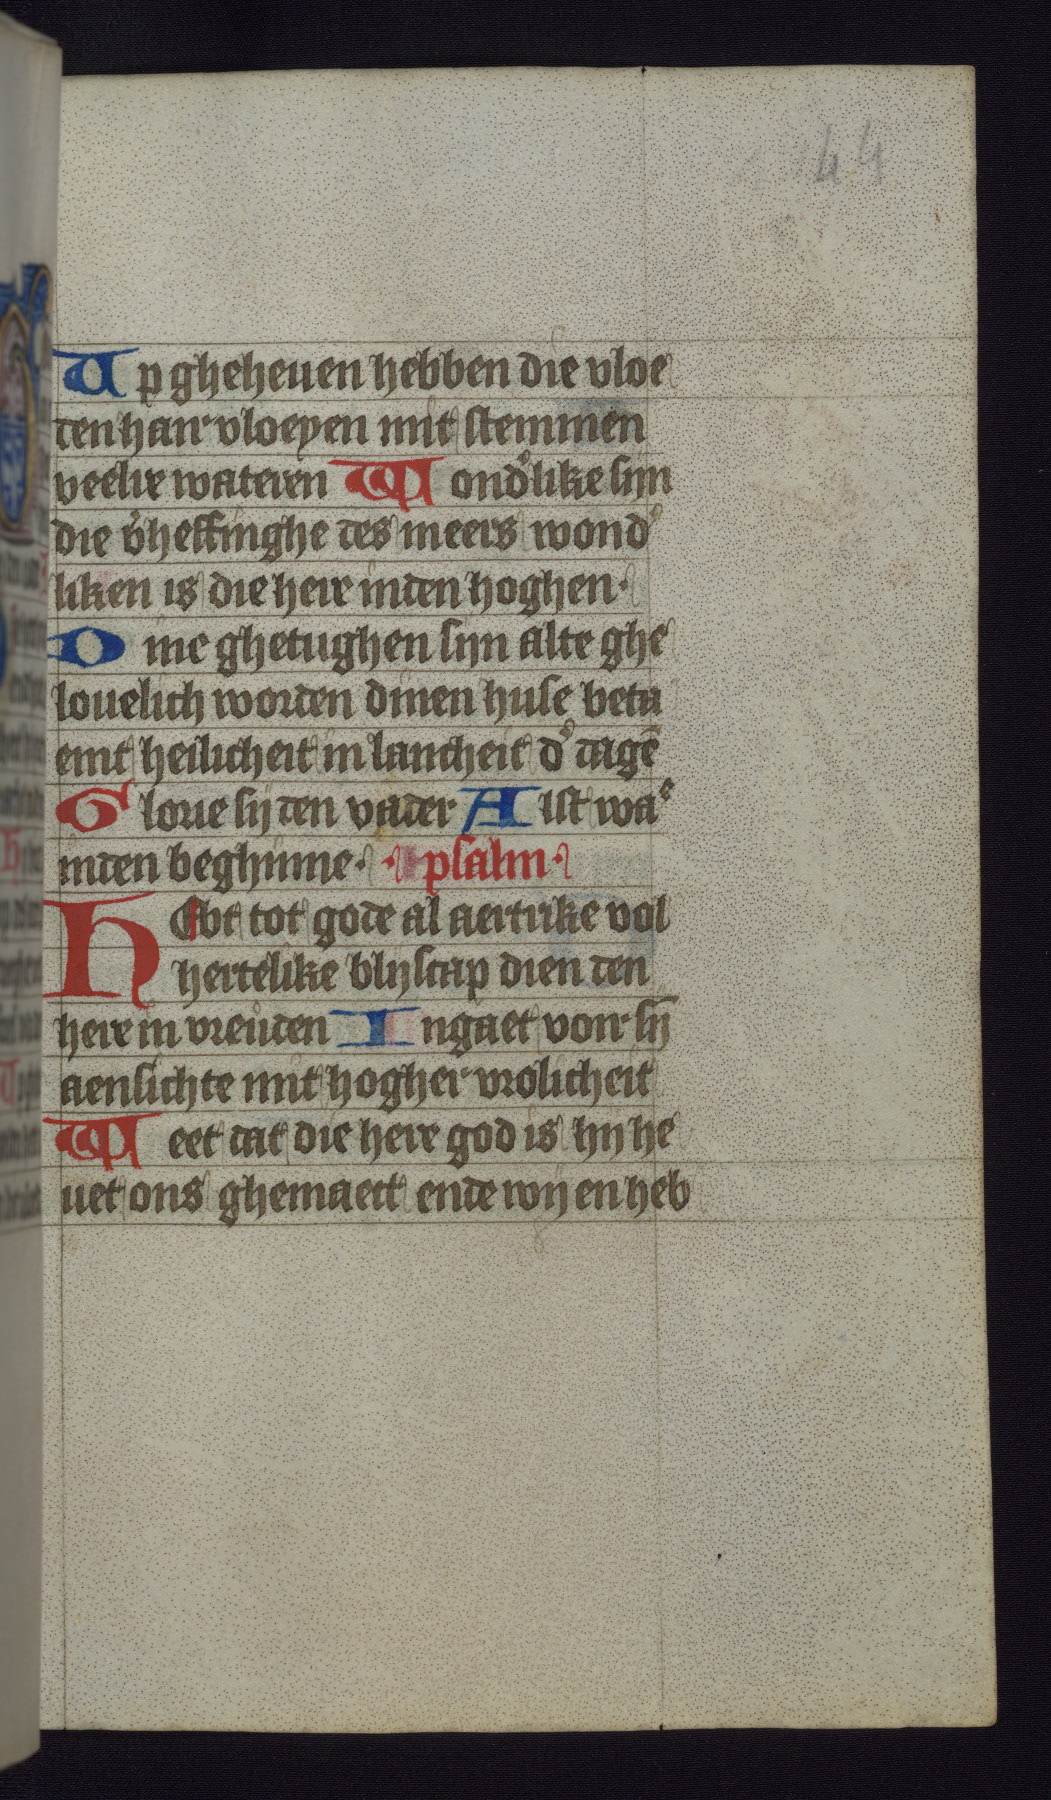 44
Up gheheuen hebben die vloe
ten han vloeyen mit stemmen
veelre wateren Wondᵒlike sijn
die vᵒheffinghe des meers wondᵒ
liken is die here inden hoghen·
Dine ghetughen sijn alte ghe
louelich worden dinen huse beta
emt heilicheit in lancheit dᵒ dagē
Glorie sij den vader Alst waˢ
inden beghinne· · psalm·
Hebt tot gode al aertrike vol
hertelike blijscap dien den
here in vreuden Ingaet voir sij̄
aensichte mit hogher vrolicheit
Weet dat die here god is hij he
uet ons ghemaect ende wij en heb